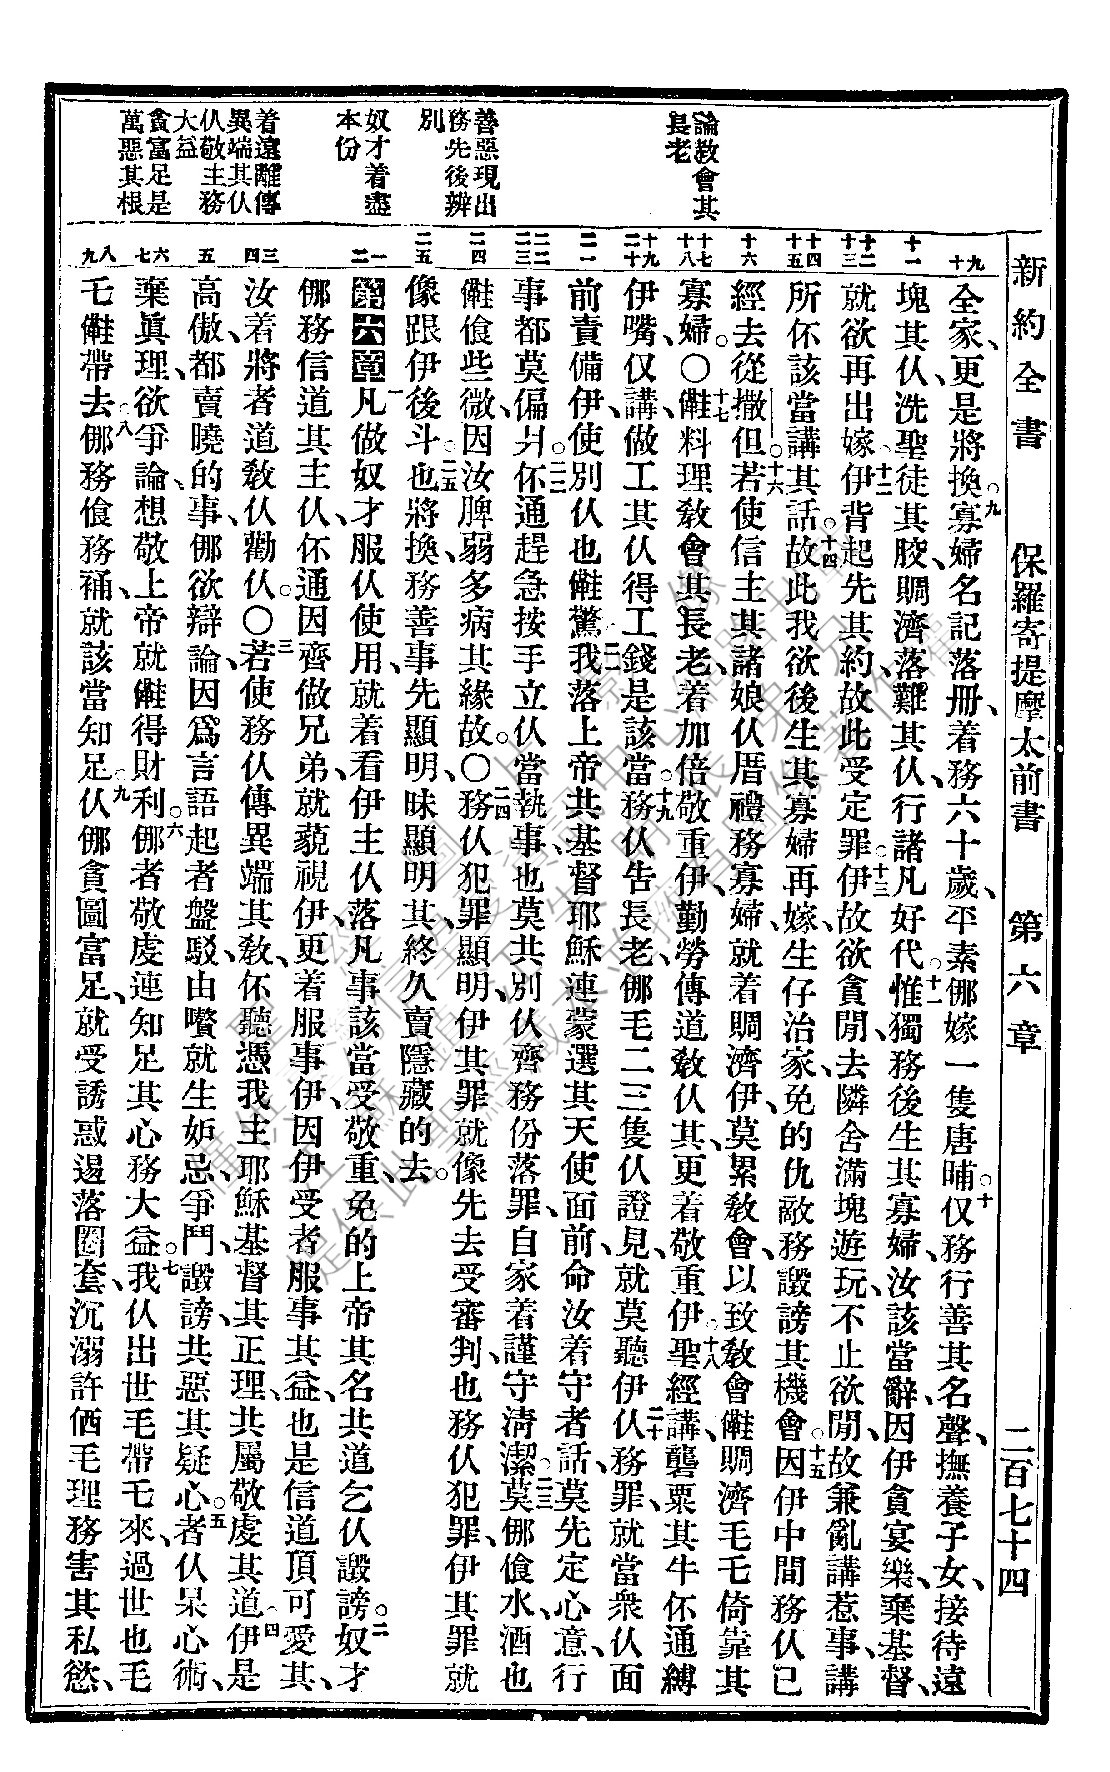 新約全書 保羅寄提摩太前書 第六章 二百七十四
論教會其長老
善惡現出務先後辨別
奴才着盡本份
着遠離傳異端其仈仈敬主務大益
貪富足是萬惡其根
全家、更是將換。九寡婦名記落册、着務六十歲、平素𠆧嫁一隻唐晡。十仅務行善其名聲、撫養子女、接待遠
塊其仈、洗聖徒其胶、賙濟落難其仈、行諸凡好代。十一惟獨務後生其寡婦、汝該當辭、因伊貪宴樂、棄基督、
就欲再出嫁。十二伊背起先其約、故此受定罪。十三伊故欲貪閒、去隣舍滿塊遊玩、不止欲閒、故兼亂講惹事、講
所伓該當講其話。十四故此我欲後生其寡婦再嫁、生仔治家、免的仇敵務譭謗其機會。十五因伊中間務仈已
經去從撒但。十六若使信主其諸娘仈厝禮務寡婦、就着賙濟伊、莫累敎會、以致敎會𣍐賙濟毛乇倚靠其
寡婦。○十七料理敎會其長老、着加倍敬重伊、勤勞傳道敎仈其、更着敬重伊。十八聖經講礱粟其牛、伓通縛
伊嘴、仅講、做工其仈得工錢是該當。十九務仈告長老、毛二三隻仈證見、就莫聽伊。二十仈務罪、就當衆仈面
前責備伊、使別仈也驚。二一我落上帝共基督耶穌、連蒙選其天使面前、命汝着守者話、莫先定心意、行
事都莫偏爿。二二伓通趕急按手立仈當執事、也莫共別仈齊務份落罪、自家着謹守清潔。二三莫食水、酒也
食些微、因汝脾弱多病其緣故。○二四務仈犯罪顯明、伊其罪就像先去受審判、也務仈犯罪、伊其罪就
像跟伊後斗。二五也將換、務善事先顯明、昧顯明其、終久賣隱藏的去。
第六章 一凡做奴才服仈使用、就着看伊主仈落凡事該當受敬重、免的上帝其名共道乞仈譭謗。二奴才
務信道其主仈、伓通因齊做兄弟、就藐視伊、更着服事伊、因伊受者服事其益、也是信道頂可愛其、
汝着將者道敎仈勸仈。○三若使務仈傳異端其敎、伓聽憑我主耶穌基督其正理、共屬敬虔其道、四伊是
高傲、都賣曉的事、欲辯論、因爲言語起者盤駁、由嚽就生妒忌、爭鬥、譭謗、共惡其疑心。五者仈呆心術、
棄眞理、欲爭論、想敬上帝就得財利。六者敬虔連知足其心務大益。七我仈出世毛帶乇來、過世也毛
乇帶去。八務食務𧘹、就該當知足。九仈貪圖富足、就受誘惑、逿落圈套、沉溺許毛理務害其私慾、